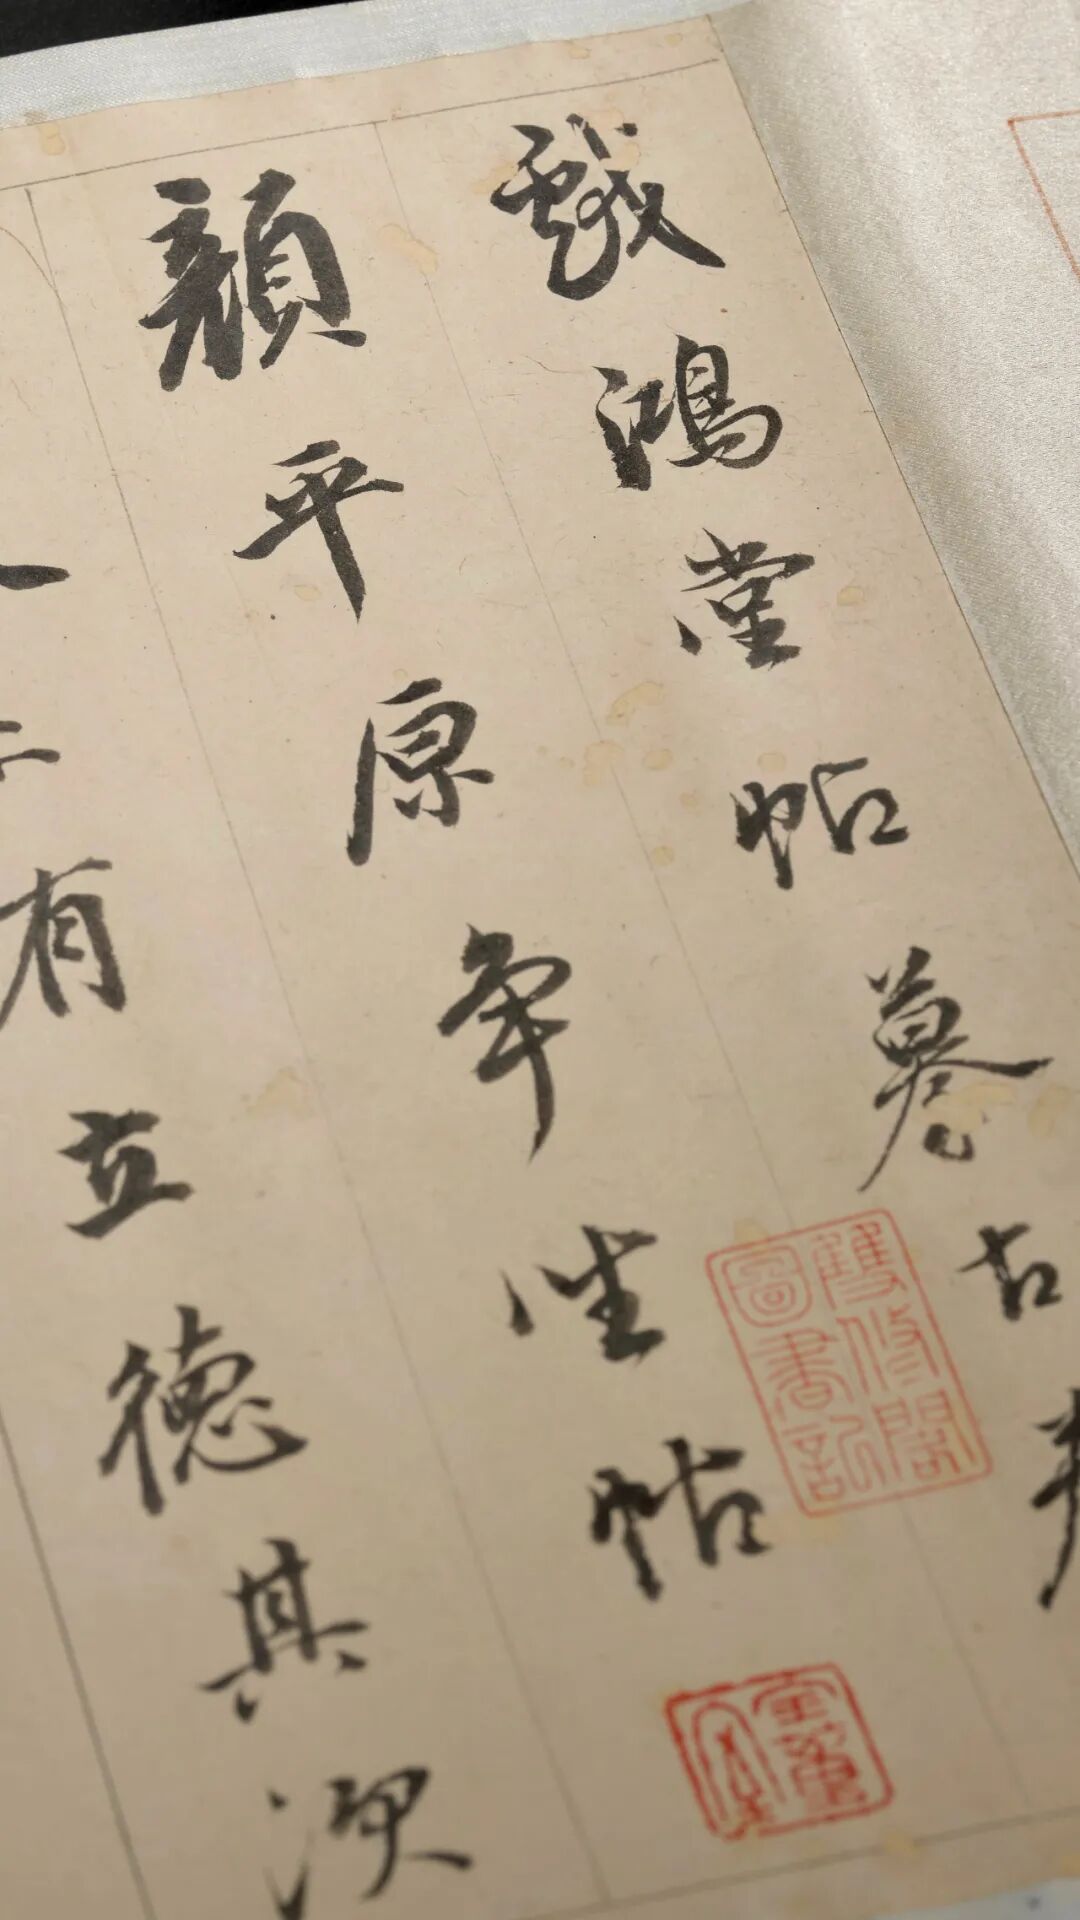 戲鴻堂帖摹古
顏平原争坐帖
有立德其次
雙修閣圖書記